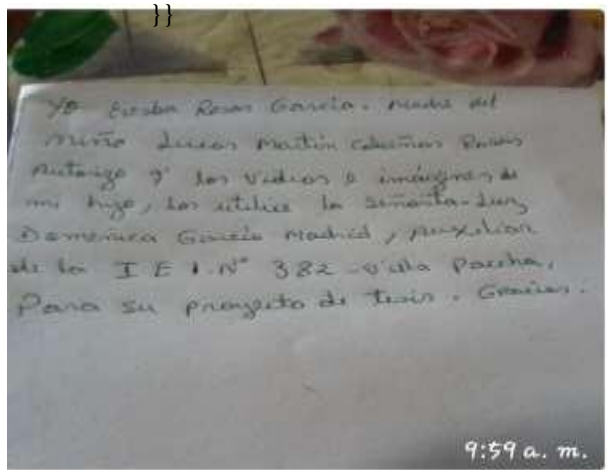 }}
Yo Rosas García. Madre del
niño Lucas Martín Rosas
Autorizo q' los videos e imágenes de
mi hijo, los utilice la señorita Luz
Domenica García Madrid, Auxiliar
de la I E I. N° 382 - Villa Paccha,
Para su proyecto de tesis. Gracias.
9:59 a. m.